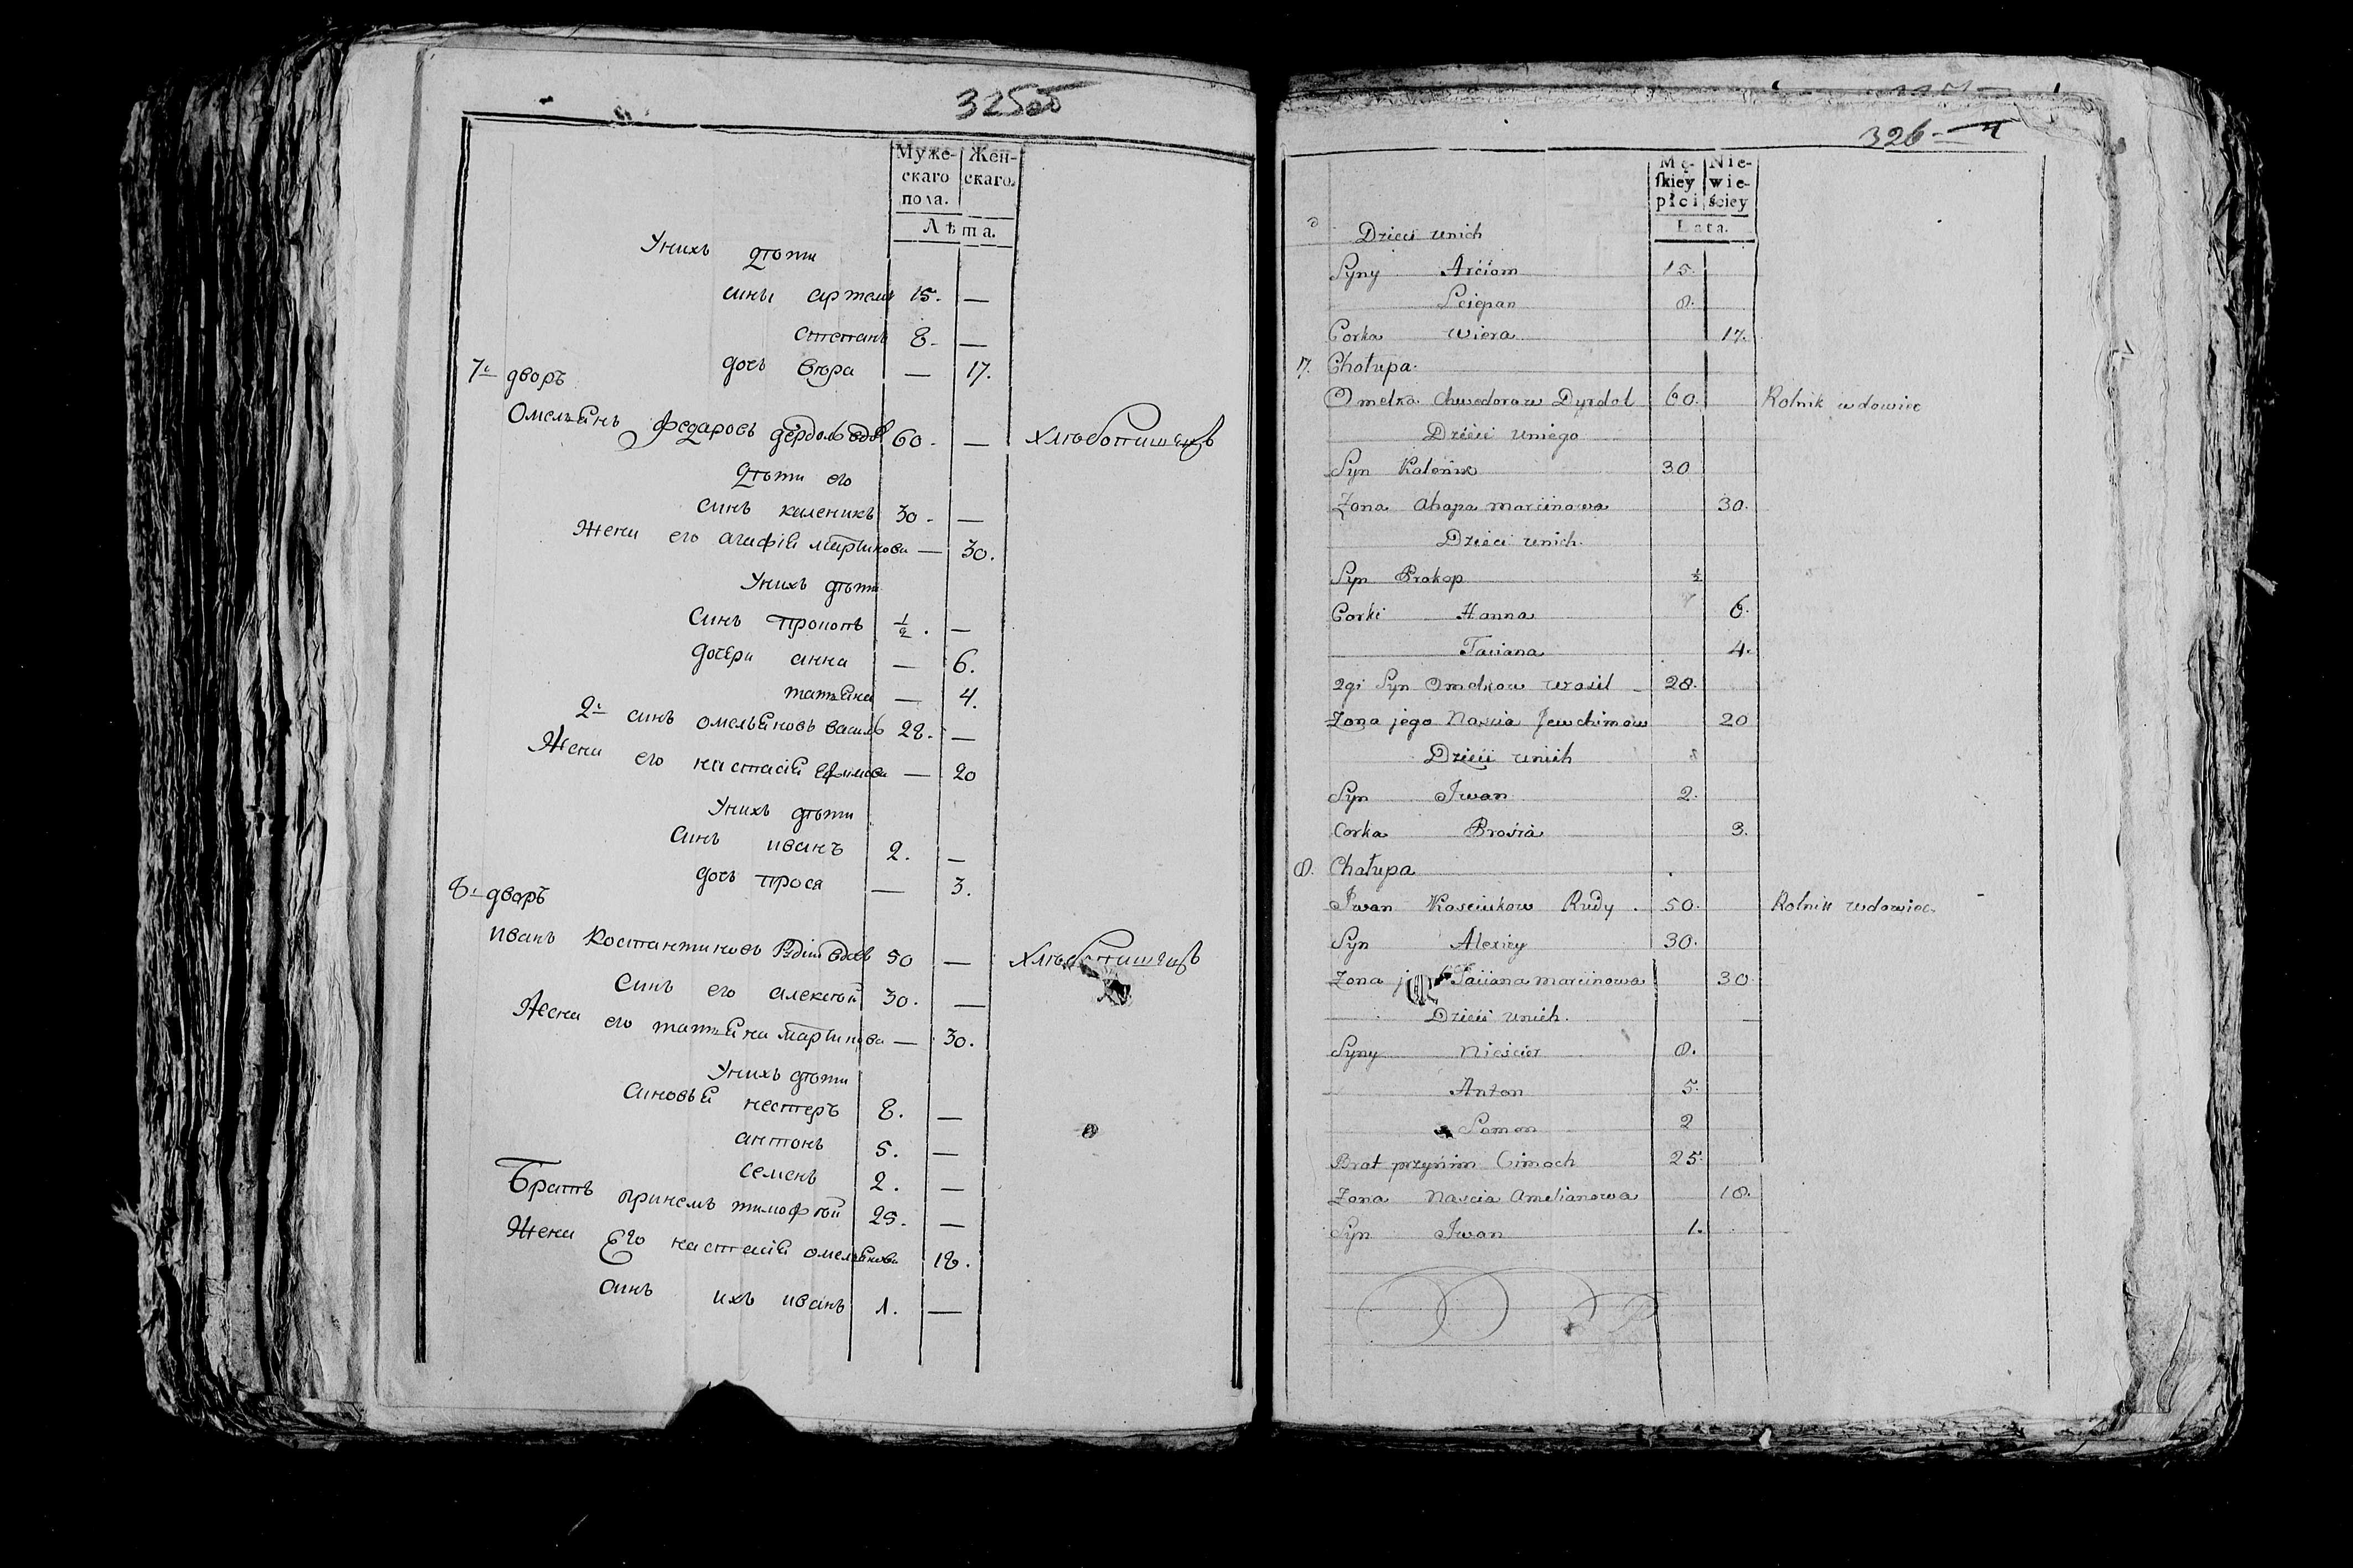 325об
Муже-
скаго
пола.
Жен-
скаго.
Лѣта.
Унихъ дѣти
сины артемъ 15. —
степанъ 8. —
дочъ вѣра — 17.
7й дворъ
Омельянъ Федаровъ дердоль вдов 60. — хлѣбопашецъ
дѣти его
синъ каленикъ 30. —
жена его агафія мартинова — 30.
Унихъ дѣти
синъ прокопъ ½. —
дочери анна — 6.
татьяна — 4.
2й синъ омельяновъ василь 28. —
жена его настасія ефимова — 20
Унихъ дѣти
синъ иванъ 2. —
дочъ прося — 3.
8й дворъ
иванъ костантиновъ Рудій вдов 50 — хлѣбопашецъ
синъ его алексѣй 30. —
жена его татьяна мартинова — 30.
Унихъ дѣти
синовья нестеръ 8. —
антонъ 5. —
семенъ 2. —
Братъ принемъ тимофѣй 25. —
жена Его настасія омельянова 18.
синъ ихъ иванъ 1. —
326
Mę-
ſkiey
płci
Nie-
wie-
ściey
Lata.
Dzieci unich
Syny Arciom 15.
Sciepan 8.
Corka Wiera 17.
7. Chałupa.
Omelka Chwedoraw Dyrdol 60. Rolnik wdowiec
Dzieci uniego
Syn Kalenik 30
Zona Ahapa marcinowa 30.
Dzieci unich.
Syn Prokop ½
Corki Hanna 6.
Taciana 4.
2gi Syn Omelkow wasil 28.
Zona jego Nascia Jewchimow 20
Dzieci unich
Syn Iwan 2.
Corka Prosia 3.
8. Chałupa
Iwan Kasciukow Rudy. 50. Rolnik wdowiec.
Syn Alexiey 30.
Zona Taciana marcinowa 30
Dzieci unich.
Syny Niescier 8.
Anton 5.
Samon 2
Brat przynim Cimoch 25.
Zona Nascia Amelianowa 18.
Syn Iwan 1.